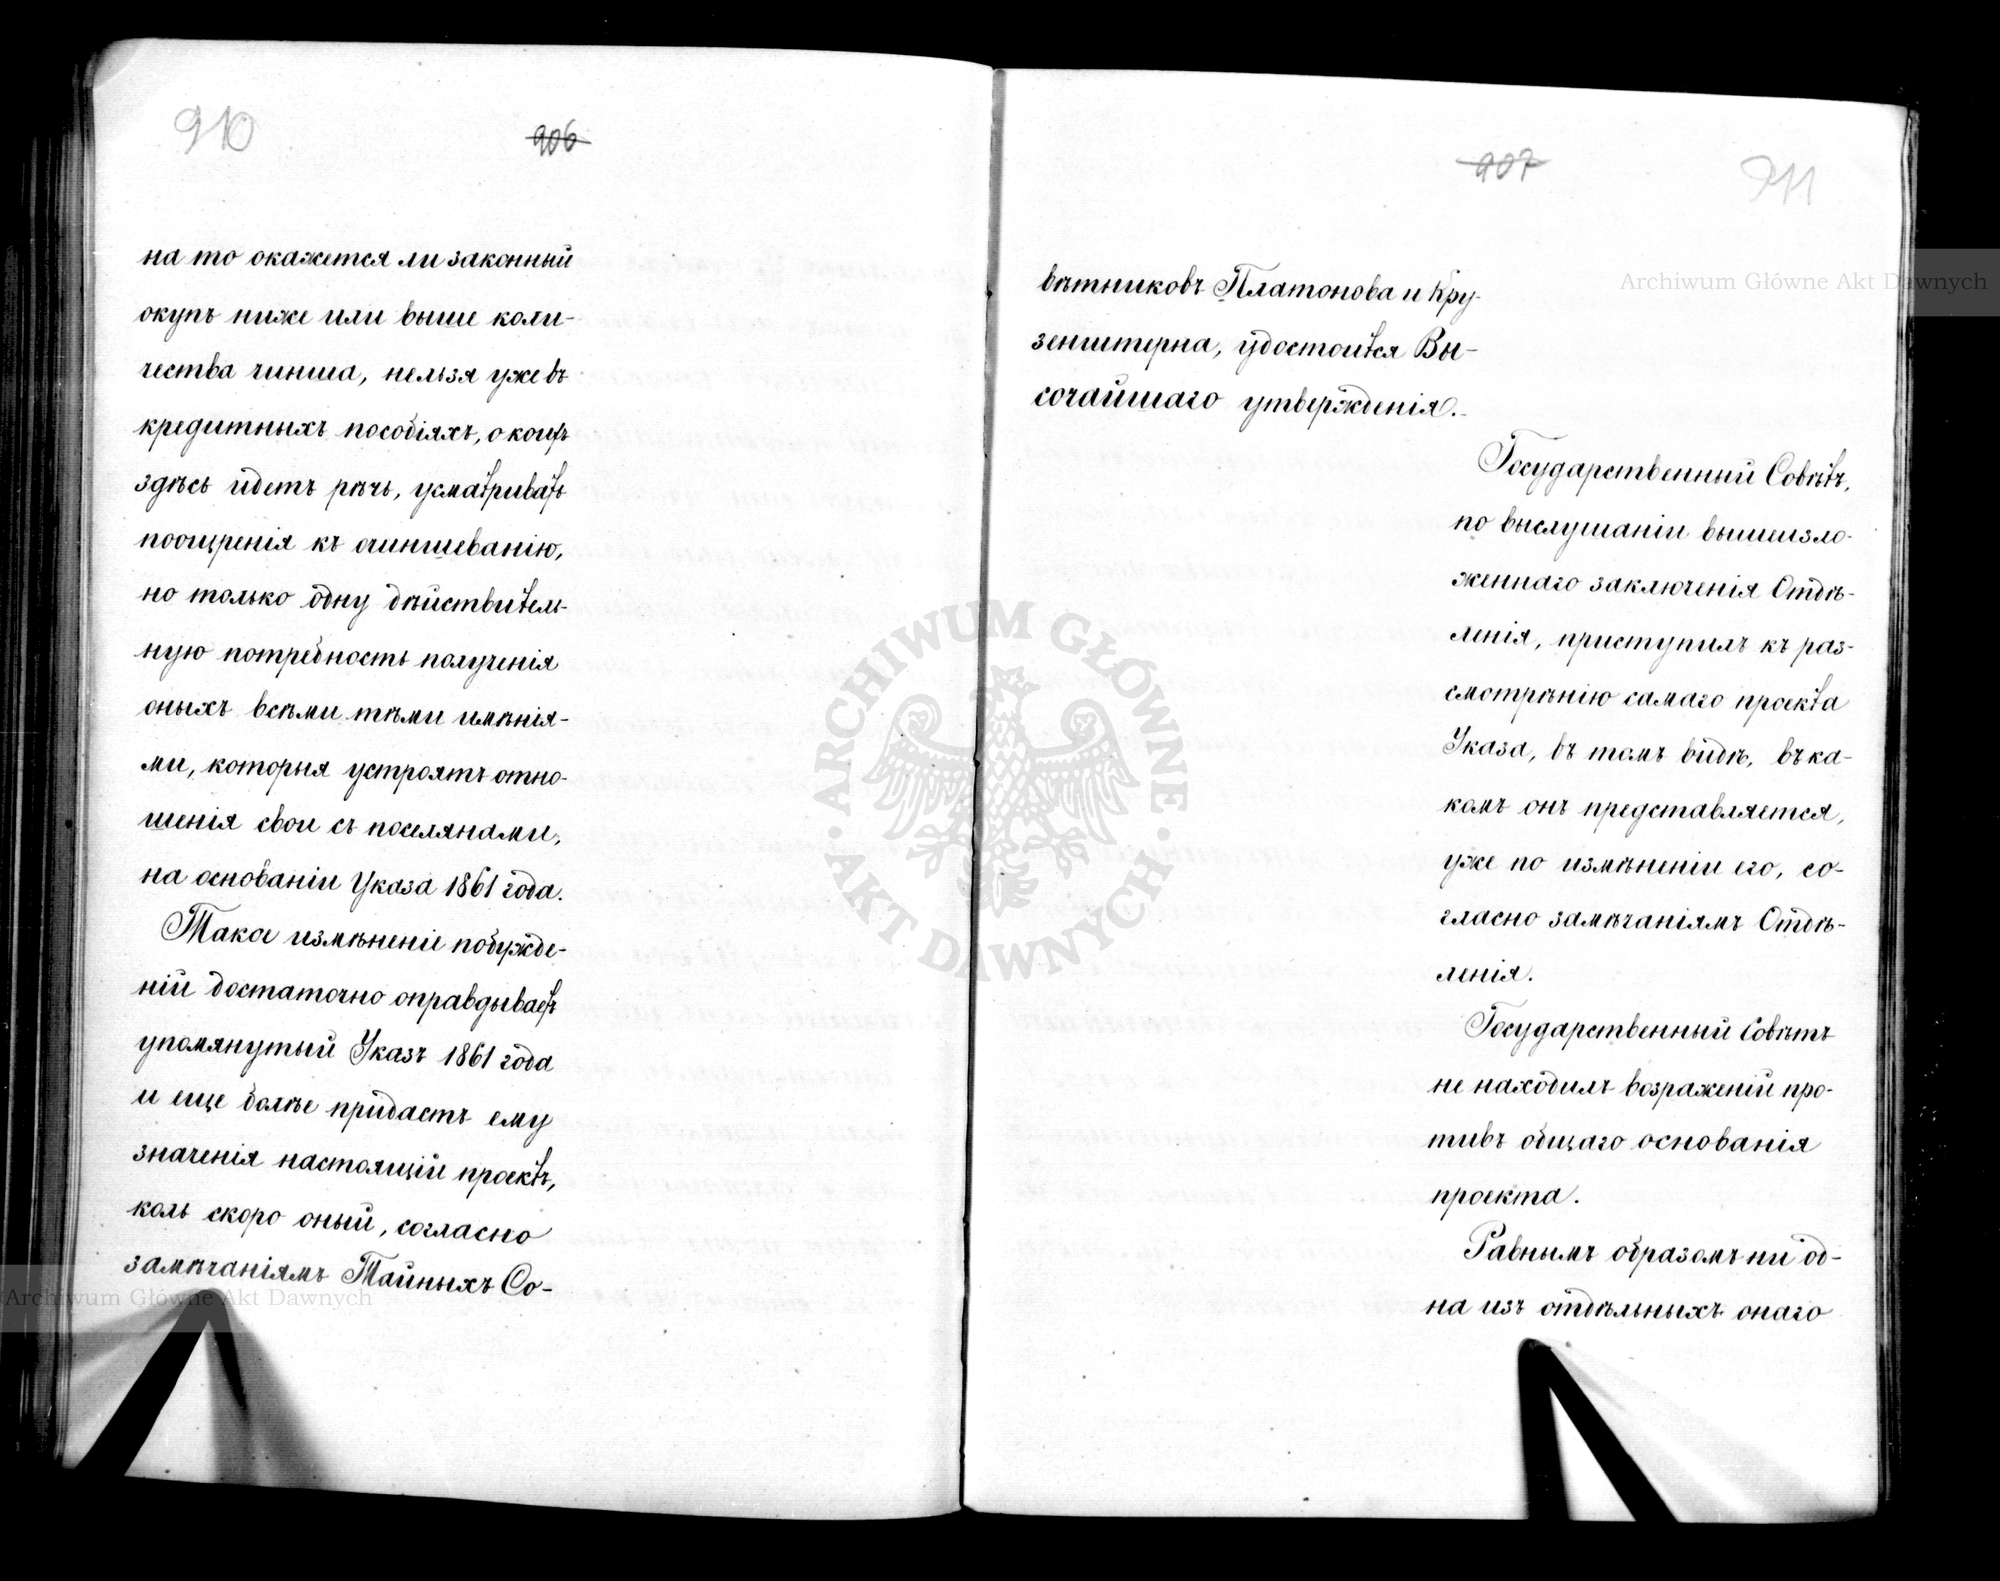 910
906
на то окажется ли законный
окупъ ниже или выше коли-
чества чинша, нельзя уже въ
кредитныхъ пособіяхъ, о коихъ
здѣсь идетъ рѣчь, усматривать
поощренія къ очиншеванію,
но только одну дѣйствитель-
ную потребность полученія
оныхъ всѣми тѣми имѣнія-
ми, которыя устроятъ отно-
шенія свои съ поселянами,
на основаніи Указа 1861 года.
Такое измѣненіе побужде-
ній достаточно оправдываетъ
упомянутый Указъ 1861 года
и еще болѣе придастъ ему
значенія настоящій проектъ,
коль скоро оный, согласно
замѣчаніямъ Тайныхъ Со-
907
911
вѣтниковъ Платонова и Кру-
зенштерна, удостоится Вы-
сочайшаго утвержденія.
Государственный Совѣтъ,
по выслушаніи вышеизло-
женнаго заключенія Отдѣ-
ленія, приступилъ къ раз-
смотрѣнію самаго проекта
Указа, въ томъ видѣ, въ ка-
комъ онъ представляется,
уже по измѣненіи его, со-
гласно замѣчаніямъ Отдѣ-
ленія.
Государственный Совѣтъ
не находилъ возраженій про-
тивъ общаго основанія
проекта.
Равнымъ образомъ ни од-
на изъ отдѣльныхъ онаго
Archiwum Główne Akt Dawnych
Archiwum Główne Akt Dawnych
ARCHIWUM GŁÓWNE
AKT DAWNYCH